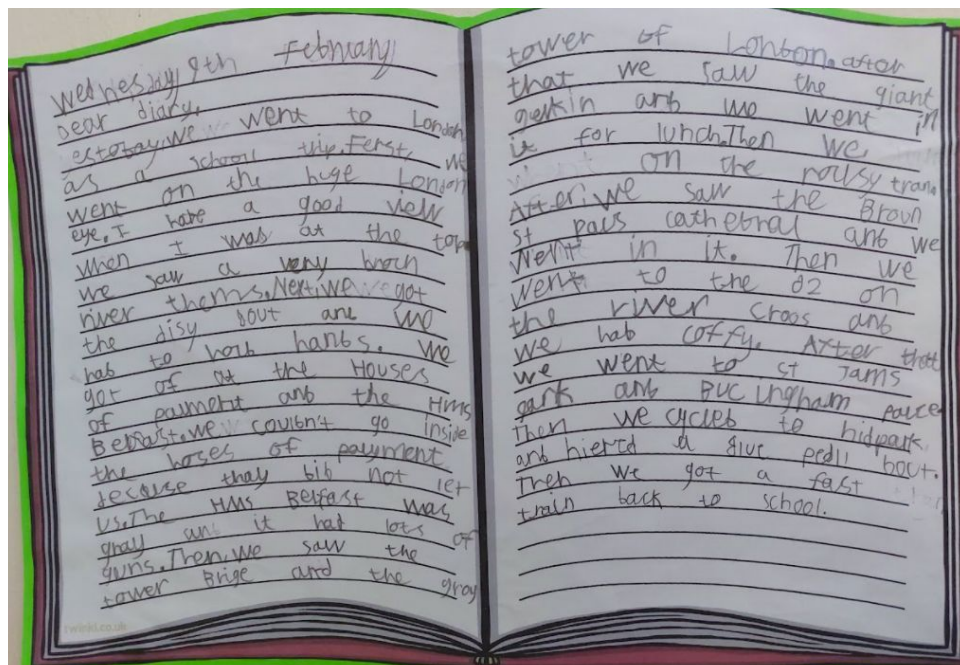 Wednesday 9th February
Dear diary,
estobay, we went to London
as a school trip. Ferst, we
went on the huge London
eye. I have a good view
when I was at the top
we saw a very broch
river thems. Next, we got
the disy bout and we
hab to houb hanbs. We
got of at the Houses
of payment anb the HMS
Belfast. we couibn't go inside
the hoses of payment
becouse thay bib not let
us. The HMS Belfast was
gray anb it had lots of
guns. Then, we saw the
tower Brige and the gray
twinkl.co.uk
tower of Lonbon. after
that we saw the giant
gerkin anb we went in
it for lunch. Then we
went on the nousy tran.
After, we saw the Broun
st pals cathebral anb we
went in it. Then we
went to the o2 on
the river croos anb
we hab coffy. After that
we went to st Jams
park anb Bucingham palce
Then we cycleb to hidpark
anb hierd a blue pedli bout.
Then we got a fast
train back to school.